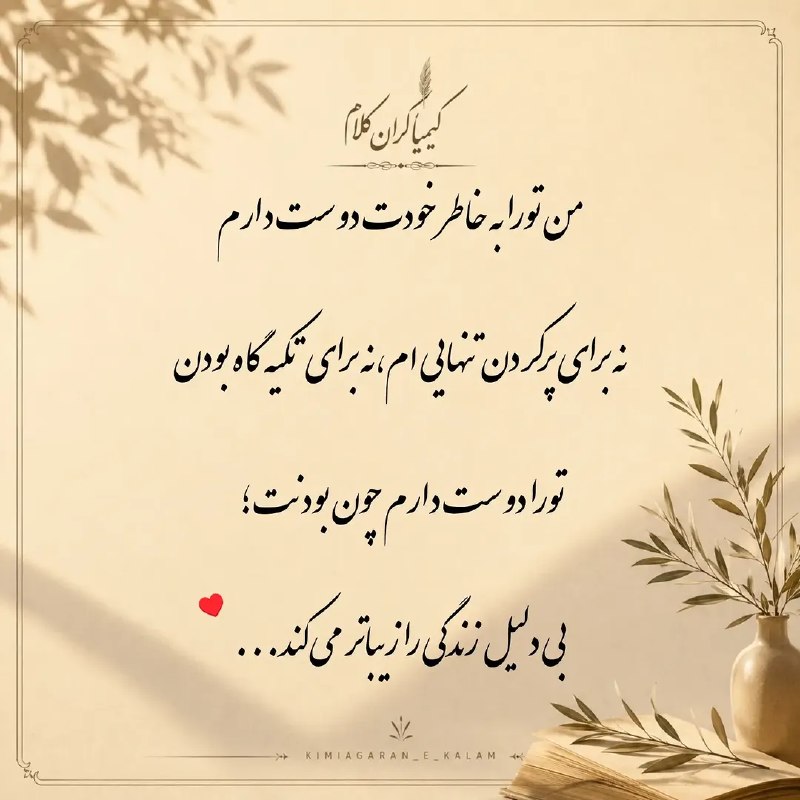 کیمیاگران کلام
من تورا به خاطر خودت دوست دارم
نه برای پرکردن تنهایی ام،نه برای تکیه گاه بودن
تورا دوست دارم چون بودنت؛
بی دلیل زندگی را زیباتر می کند...
KIMIAGARAN_E_KALAM